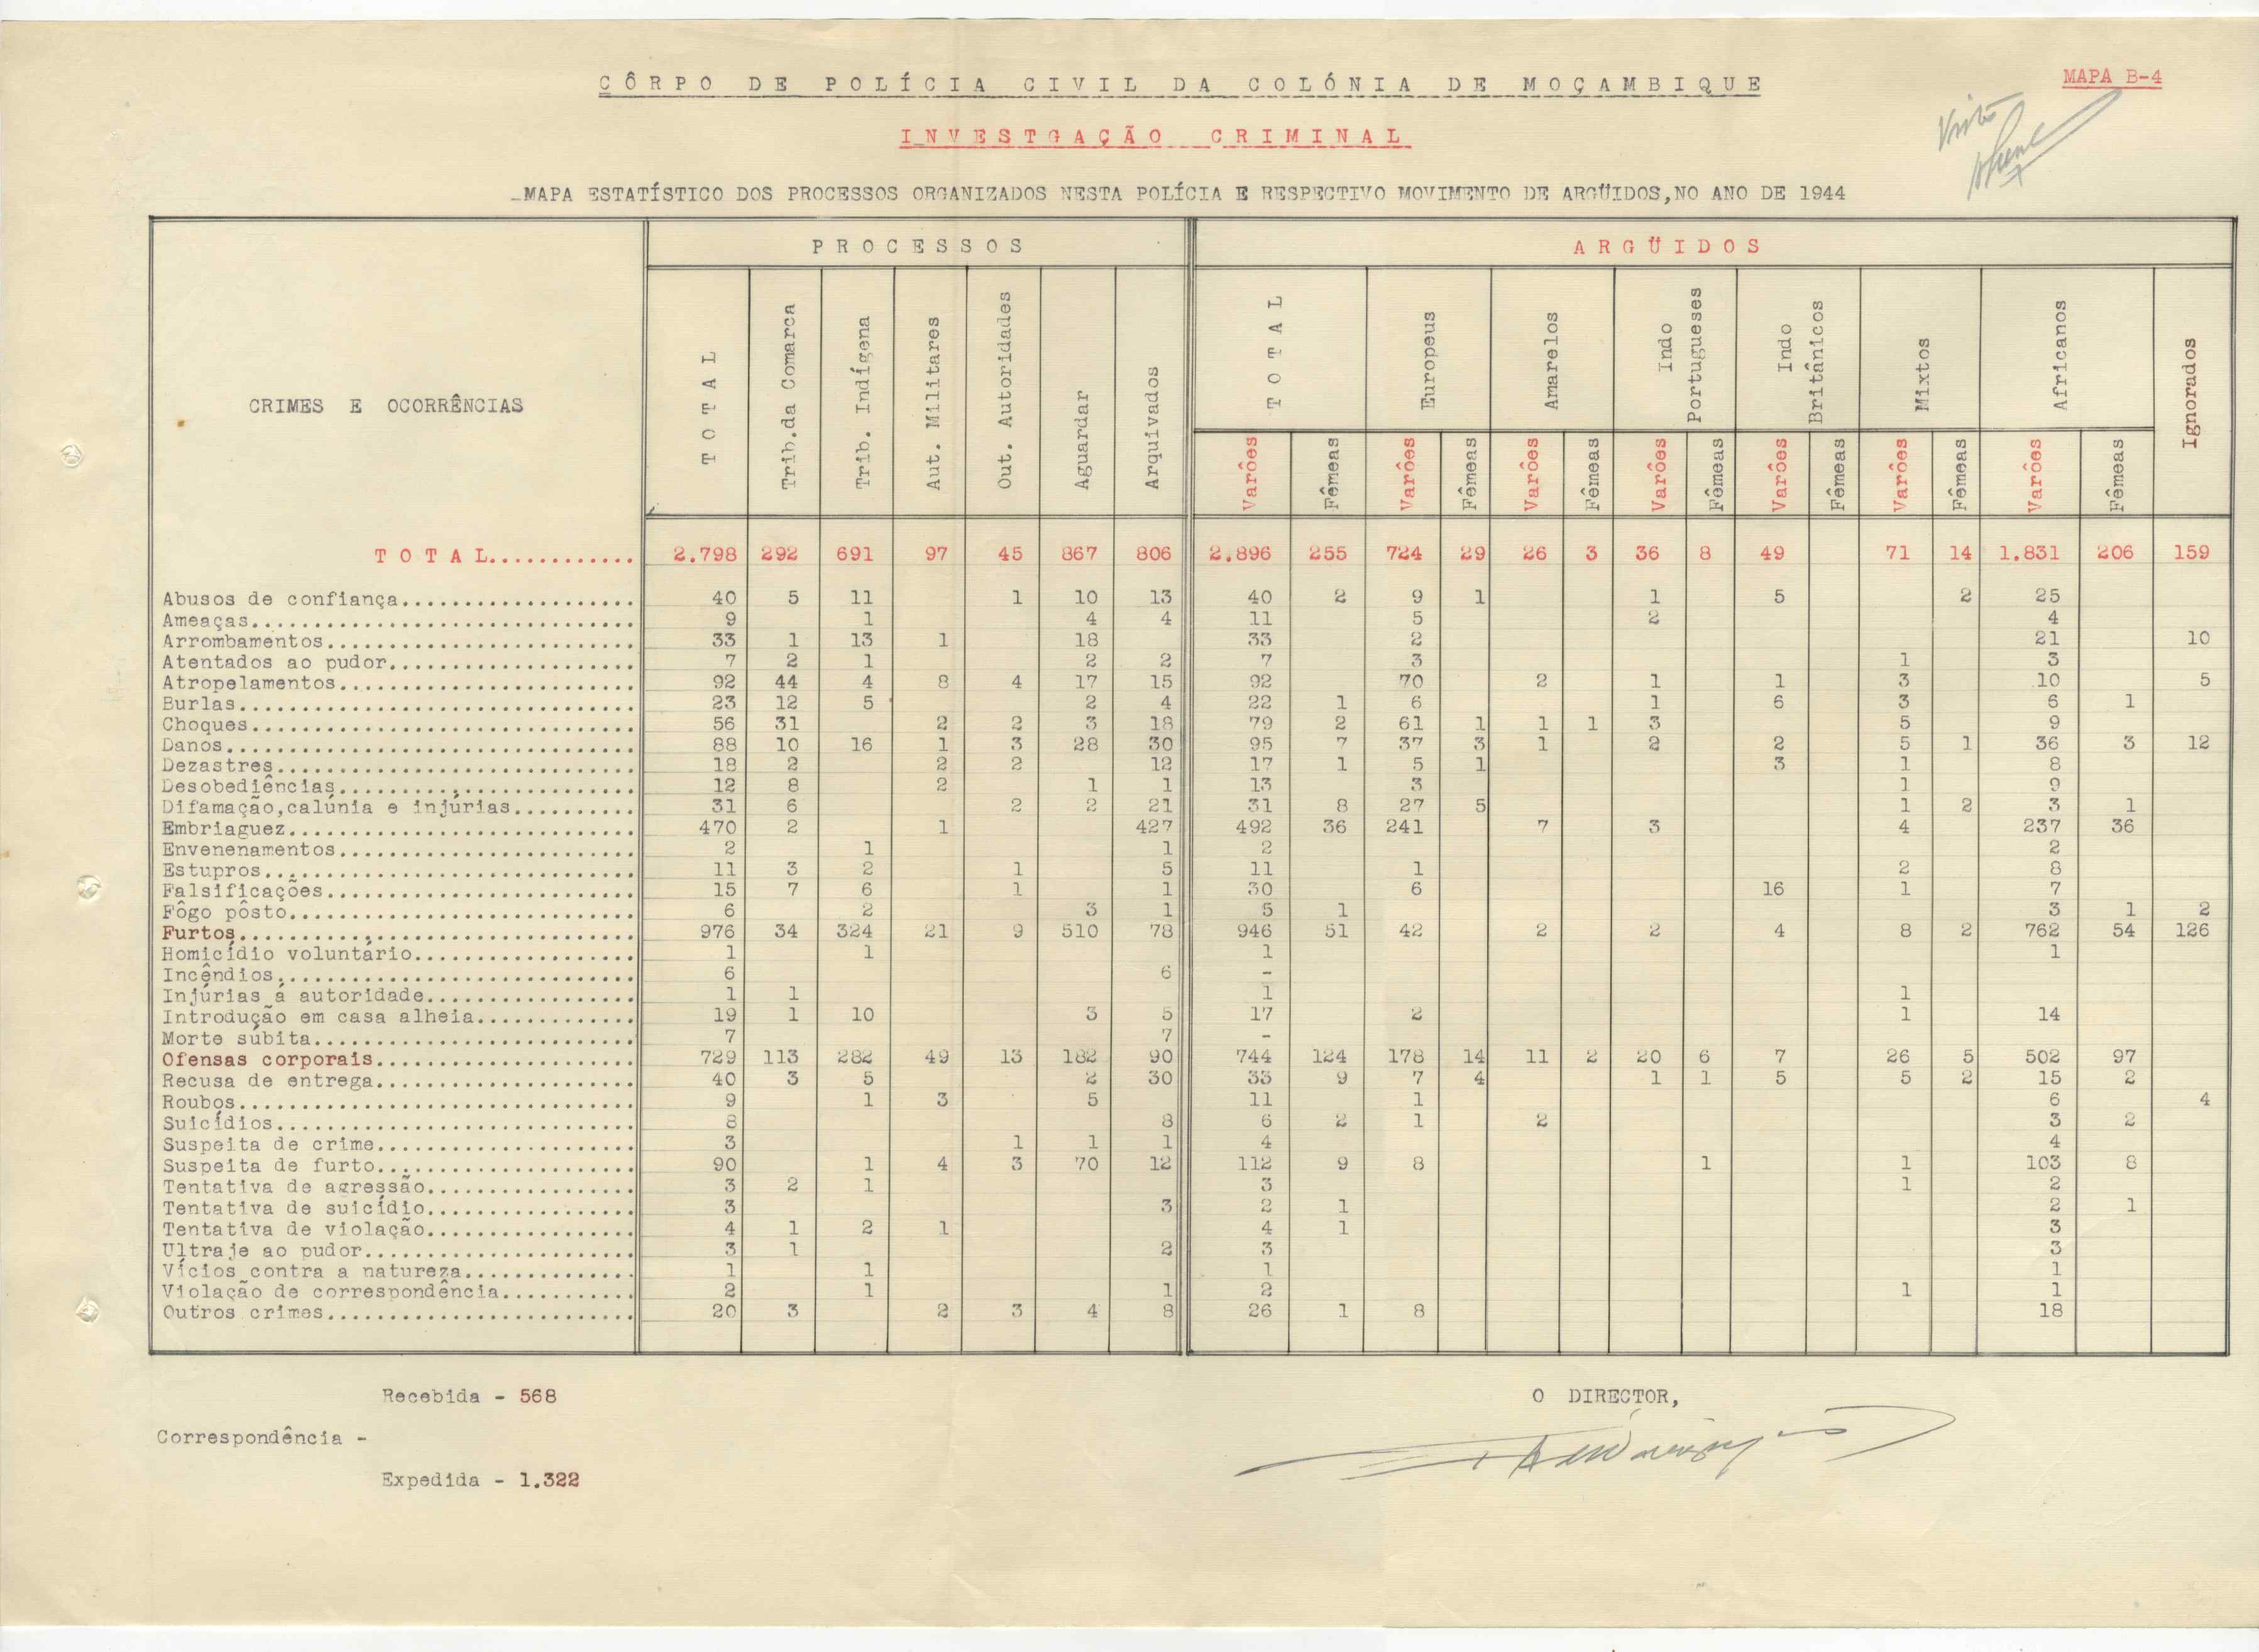 CÔRPO DE POLÍCIA CIVIL DA COLÓNIA DE MOÇAMBIQUE
MAPA B-4
Visto
INVESTGAÇÃO CRIMINAL
MAPA ESTATÍSTICO DOS PROCESSOS ORGANIZADOS NESTA POLÍCIA E RESPECTIVO MOVIMENTO DE ARGÜIDOS,NO ANO DE 1944
PROCESSOS ARGÜIDOS
CRIMES E OCORRÊNCIAS
TOTAL Trib.da Comarca Trib. Indígena Aut. Militares Out. Autoridades Aguardar Arquivados TOTAL Europeus Amarelos Indo Portugueses Indo Britânicos Mixtos Africanos Ignorados
Varôes Fêmeas Varôes Fêmeas Varôes Fêmeas Varôes Fêmeas Varôes Fêmeas Varôes Fêmeas Varôes Fêmeas
TOTAL............ 2.798 292 691 97 45 867 806 2.896 255 724 29 26 3 36 8 49 71 14 1.831 206 159
Abusos de confiança................... 40 5 11 1 10 13 40 2 9 1 1 5 2 25
Ameaças............................... 9 1 4 4 11 5 2 4
Arrombamentos......................... 33 1 13 1 18 33 2 21 10
Atentados ao pudor.................... 7 2 1 2 2 7 3 1 3
Atropelamentos........................ 92 44 4 8 4 17 15 92 70 2 1 1 3 10 5
Burlas................................ 23 12 5 2 4 22 1 6 1 6 3 6 1
Choques............................... 56 31 2 2 3 18 79 2 61 1 1 1 3 5 9
Danos................................. 88 10 16 1 3 28 30 95 7 37 3 1 2 2 5 1 36 3 12
Dezastres............................. 18 2 2 2 12 17 1 5 1 3 1 8
Desobediências........................ 12 8 2 1 1 13 3 1 9
Difamação,calúnia e injúrias.......... 31 6 2 2 21 31 8 27 5 1 2 3 1
Embriaguez............................ 470 2 1 427 492 36 241 7 3 4 237 36
Envenenamentos........................ 2 1 1 2 2
Estupros.............................. 11 3 2 1 5 11 1 2 8
Falsificações......................... 15 7 6 1 1 30 6 16 1 7
Fôgo pôsto............................ 6 2 3 1 5 1 3 1 2
Furtos................................ 976 34 324 21 9 510 78 946 51 42 2 2 4 8 2 762 54 126
Homicídio voluntário.................. 1 1 1 1
Incêndios............................. 6 6 -
Injúrias á autoridade................. 1 1 1 1
Introdução em casa alheia............. 19 1 10 3 5 17 2 1 14
Morte súbita.......................... 7 7 -
Ofensas corporais..................... 729 113 282 49 13 182 90 744 124 178 14 11 2 20 6 7 26 5 502 97
Recusa de entrega..................... 40 3 5 2 30 33 9 7 4 1 1 5 5 2 15 2
Roubos................................ 9 1 3 5 11 1 6 4
Suicídios............................. 8 8 6 2 1 2 3 2
Suspeita de crime..................... 3 1 1 1 4 4
Suspeita de furto..................... 90 1 4 3 70 12 112 9 8 1 1 103 8
Tentativa de agressão................. 3 2 1 3 1 2
Tentativa de suicídio................. 3 3 2 1 2 1
Tentativa de violação................. 4 1 2 1 4 1 3
Ultraje ao pudor...................... 3 1 2 3 3
Vícios contra a natureza.............. 1 1 1 1
Violação de correspondência........... 2 1 1 2 1 1
Outros crimes......................... 20 3 2 3 4 8 26 1 8 18
Recebida - 568
O DIRECTOR,
Correspondência -
Expedida - 1.322